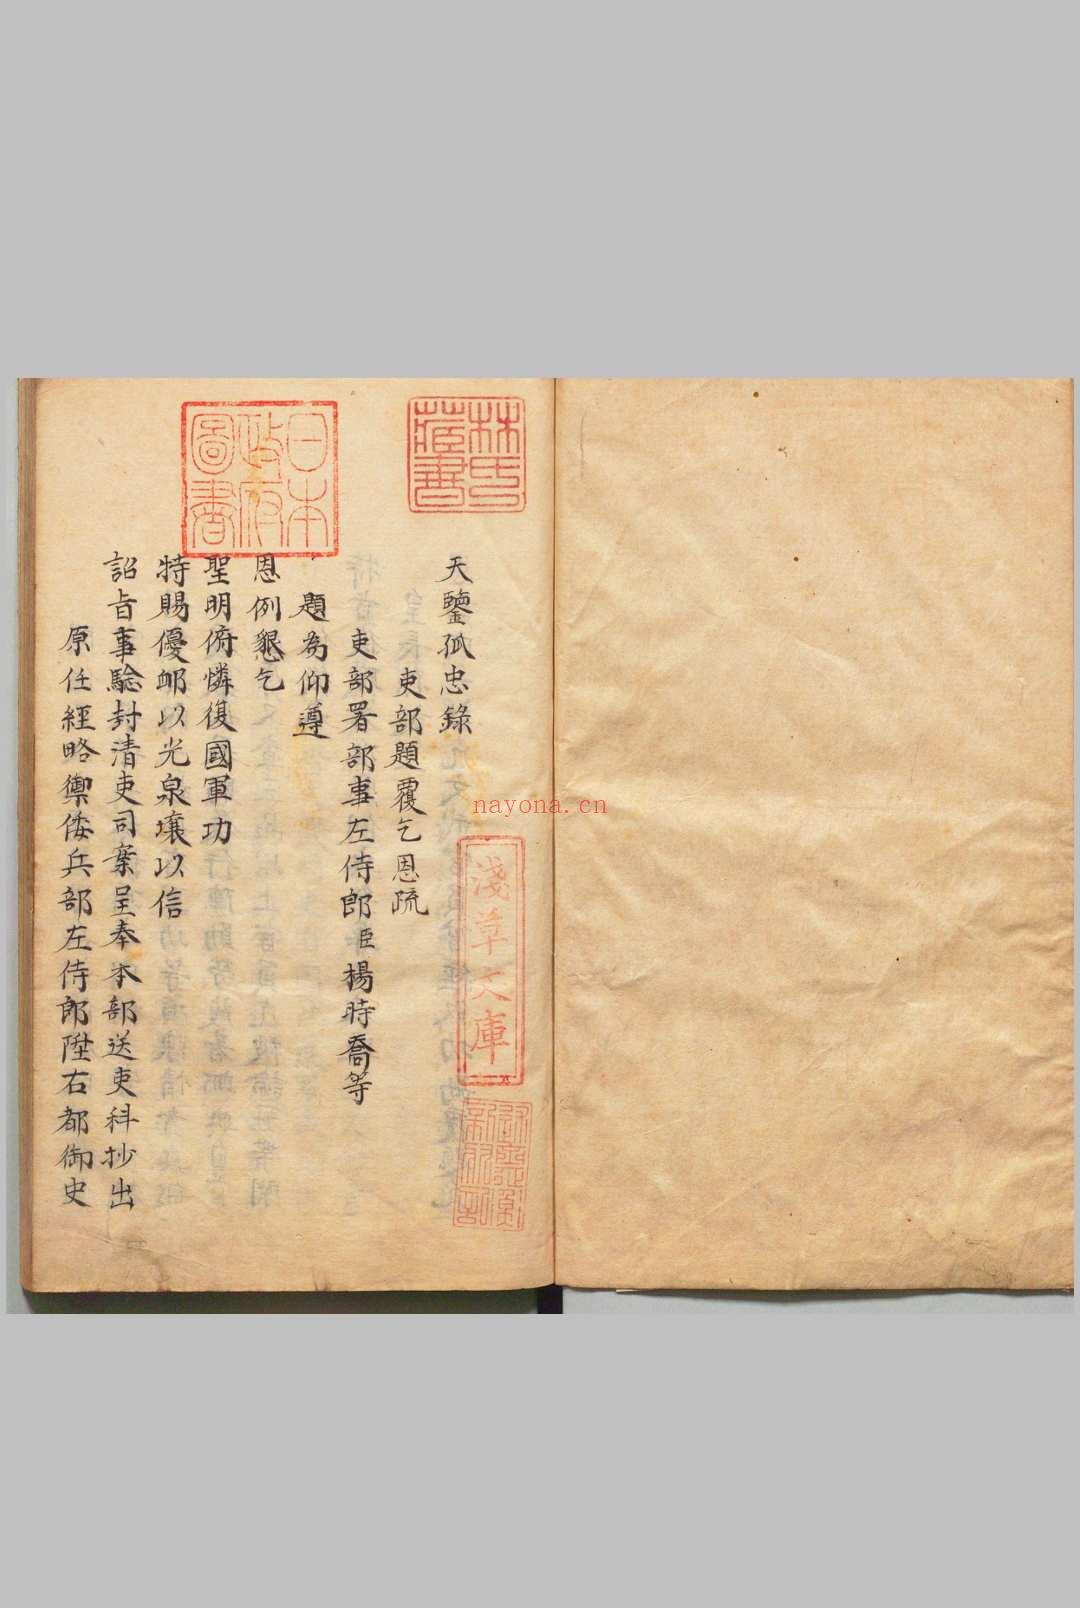 天鑒孤忠錄
吏部題覆乞恩疏
吏部署部事左侍郎臣楊時喬等
題為仰遵
恩例懇乞
聖明俯憐復國軍功
特賜優卹以光泉壤以信
詔旨事驗封清吏司案呈奉本部送吏科抄出
原任經略禦倭兵部左侍郎陞右都御史
林氏藏書
日本政府圖書
淺草文庫
nayona.cn